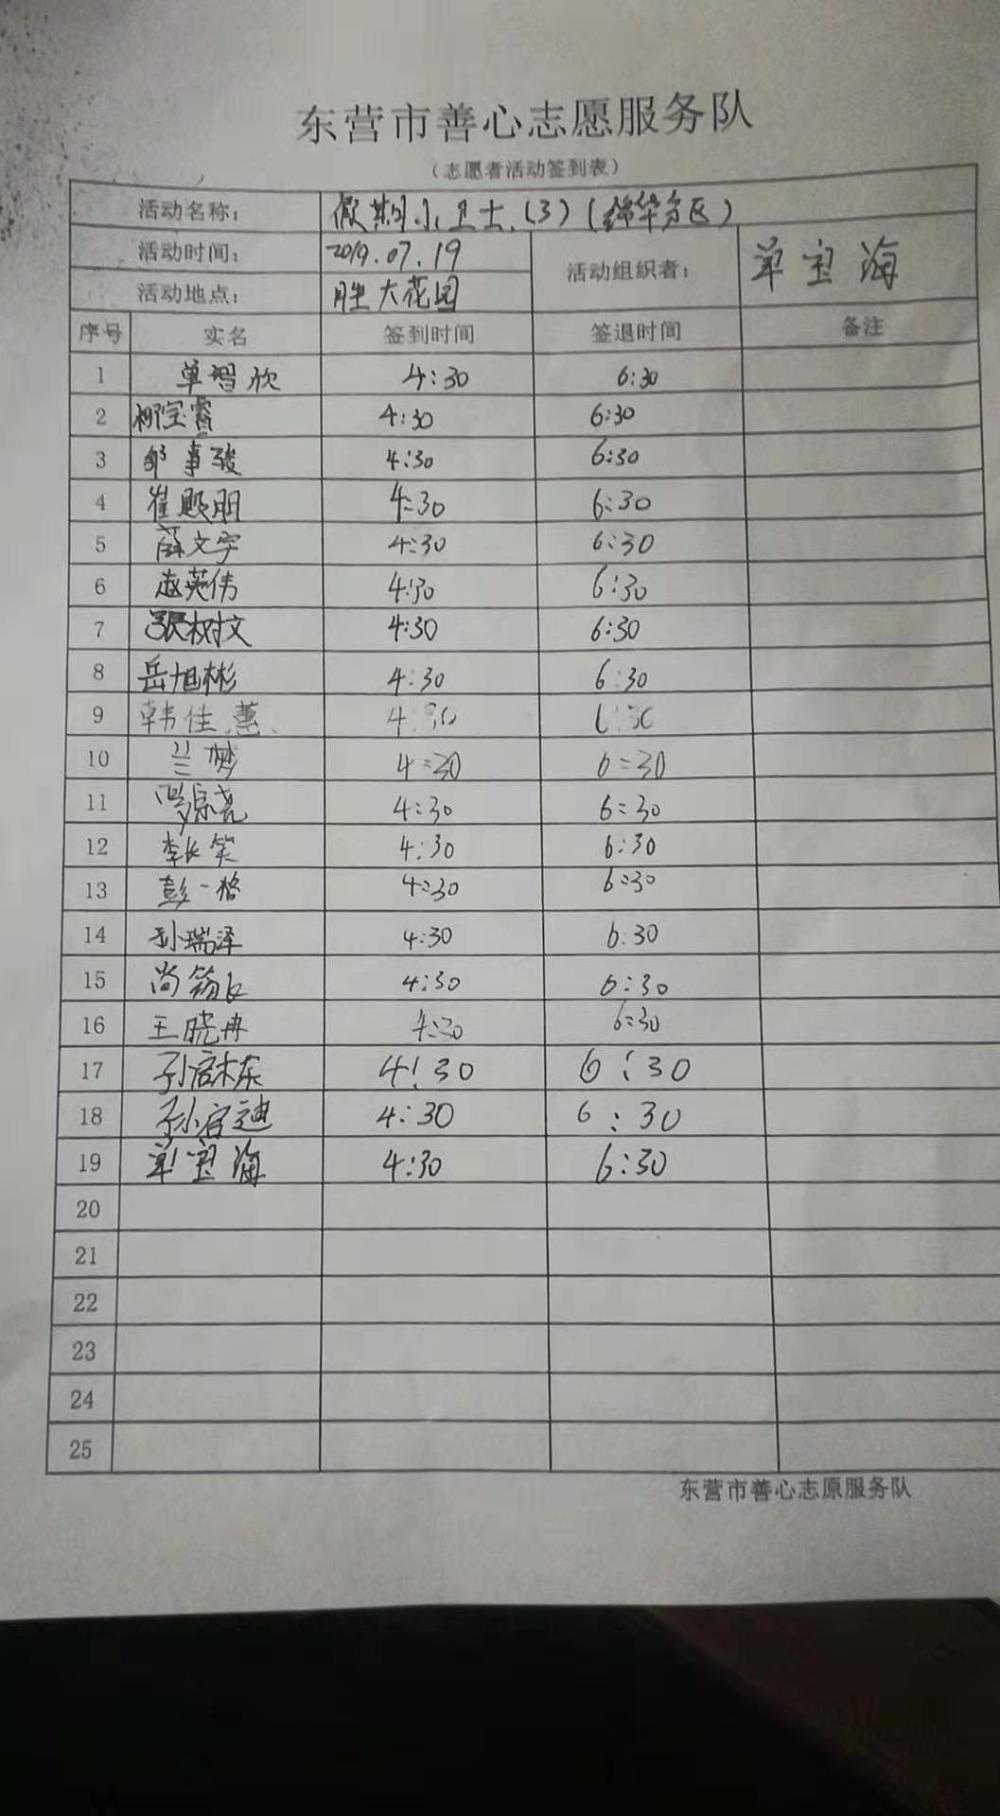 东营市善心志愿服务队
（志愿者活动签到表）
活动名称： 假期小卫士（3）（锦华分区）
活动时间： 2019.07.19 活动组织者： 单宝海
活动地点： 胜大花园
序号 实名 签到时间 签退时间 备注
1 单智欣 4:30 6:30
2 柳宝睿 4:30 6:30
3 4:30 6:30
4 崔殿明 4:30 6:30
5 薛文宇 4:30 6:30
6 赵英伟 4:30 6:30
7 张树文 4:30 6:30
8 岳旭彬 4:30 6:30
9 韩佳蕙 4:30 6:30
10 兰梦 4:30 6:30
11 4:30 6:30
12 李长笑 4:30 6:30
13 彭一格 4:30 6:30
14 孙瑞泽 4:30 6:30
15 4:30 6:30
16 王晓冉 4:30 6:30
17 孙启东 4:30 6:30
18 孙启迪 4:30 6:30
19 单宝海 4:30 6:30
20
21
22
23
24
25
东营市善心志原服务队